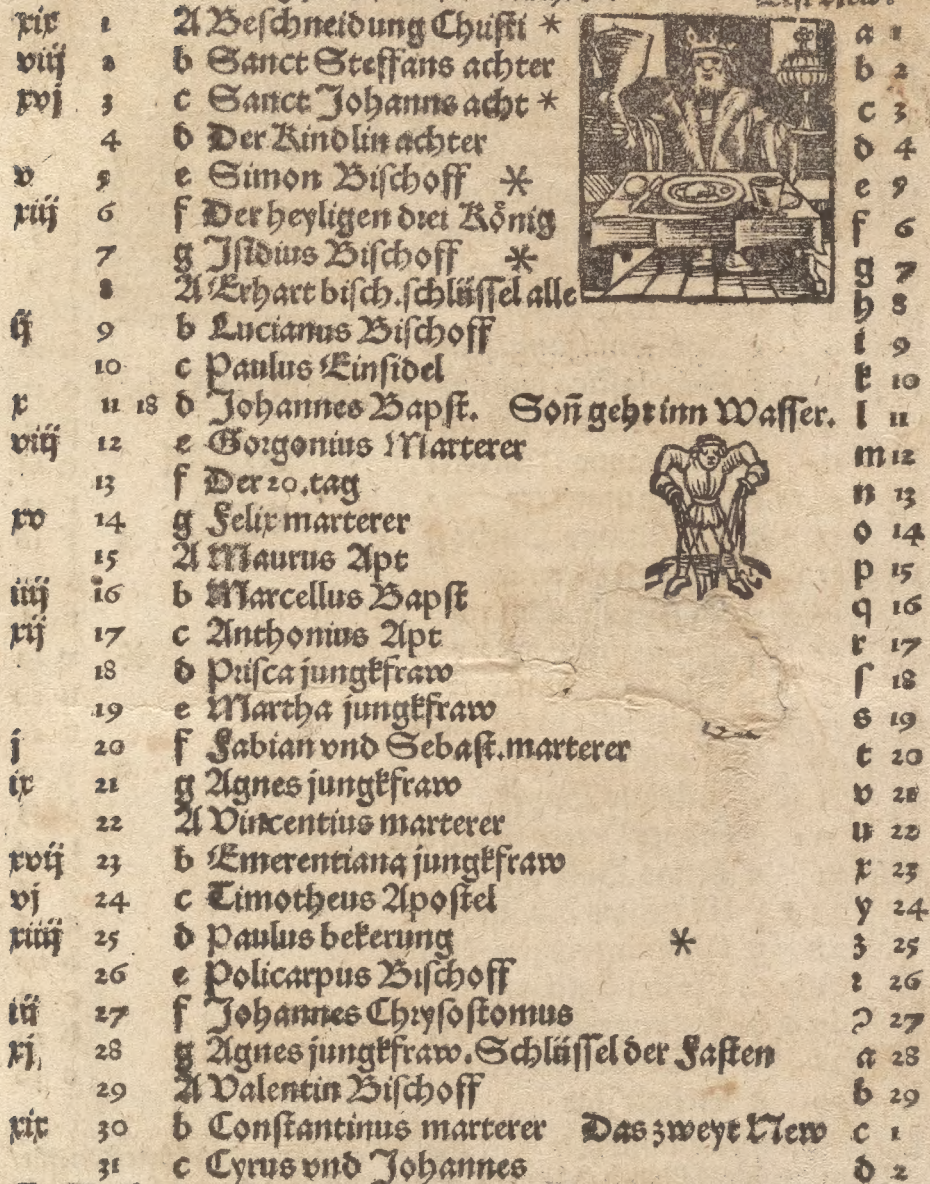 xix 1 A Beschneidung Christi * a 1
viij 2 b Sanct Steffans achter b 2
xvj 3 c Sanct Johanns acht * c 3
4 d Der Kindlin achter d 4
v 5 e Simon Bischoff * e 5
xiij 6 f Der heyligen drei Kőnig f 6
7 g Isidius Bischoff * g 7
8 A Erhart bisch. schlüssel alle h 8
ij 9 b Lucianus Bischoff i 9
10 c Paulus Einsidel k 10
x 11 18 d Johannes Bapst. Soñ geht inn Wasser. l 11
viij 12 e Gorgonius Marterer m 12
13 f Der 20. tag n 13
xv 14 g Felix marterer o 14
15 A Maurus Apt p 15
iiij 16 b Marcellus Bapst q 16
xij 17 c Anthonius Apt r 17
18 d Prisca jungkfraw ſ 18
19 e Martha jungkfraw s 19
j 20 f Fabian vnd Sebast. marterer t 20
ix 21 g Agnes jungkfraw v 21
22 A Vincentius marterer u 22
xvij 23 b Emerentiana jungkfraw x 23
vj 24 c Timotheus Apostel y 24
xiiij 25 d Paulus bekerung * z 25
26 e Policarpus Bischoff 26
iij 27 f Johannes Chrysostomus 27
xj 28 g Agnes jungkfraw. Schlüssel der Fasten a 28
29 A Valentin Bischoff b 29
xix 30 b Constantinus marterer Das zweyt New c 1
31 c Cyrus vnd Johannes d 2